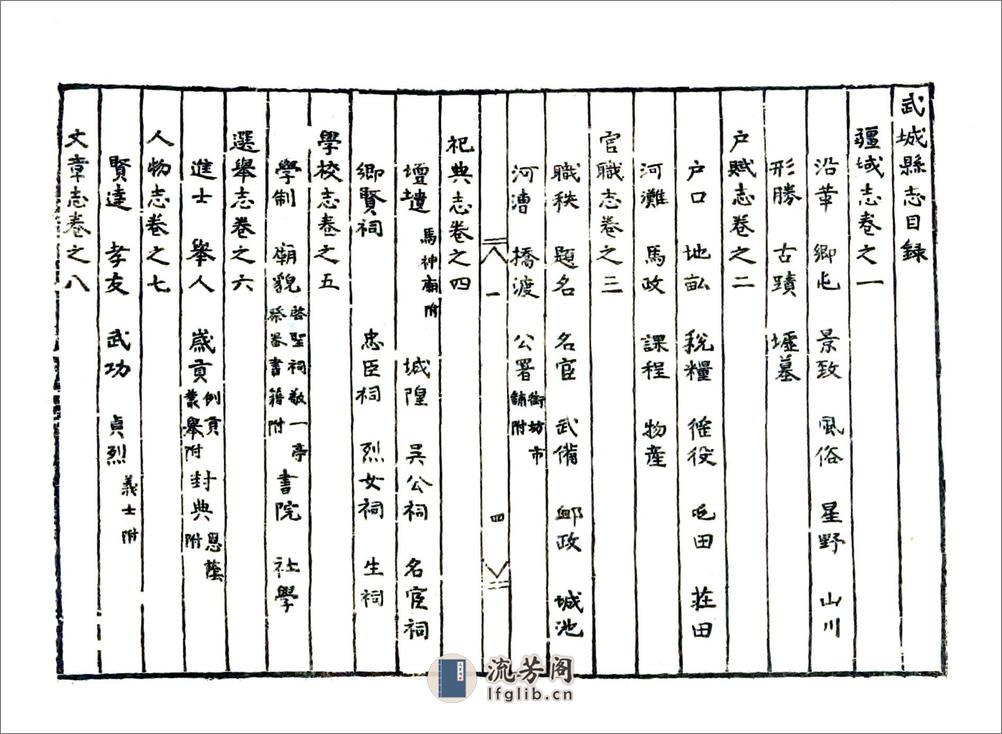 武城縣志目録
疆域志卷之一
沿革 鄉屯 景致 風俗 星野 山川
形勝 古蹟 墟墓
户賦志卷之二
户口 地畝 税糧 徭役 屯田 莊田
河灘 馬政 課程 物産
官職志卷之三
職秩 題名 名宦 武備 郵政 城池
河漕 橋渡 公署 街坊市舖附
一 四
祀典志卷之四
壇壝 馬神廟附 城隍 吳公祠 名宦祠
鄉賢祠 忠臣祠 烈女祠 生祠
學校志卷之五
學制 廟貌 啓聖祠敬一亭祭器書籍附 書院 社學
選舉志卷之六
進士 舉人 歲貢 例貢 舉附 封典 恩蔭附
人物志卷之七
賢達 孝友 武功 貞烈 義士附
文章志卷之八
流芳阁
lfglib.cn